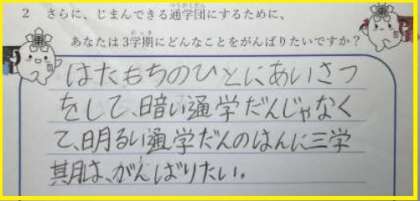 2 さらに、じまんできる通学団にするために、
あなたは3学期にどんなことをがんばりたいですか?
はたもちのひとにあいさつ
をして、暗い通学だんじゃなく
て、明るい通学だんのはんに三学
期は、がんばりたい。